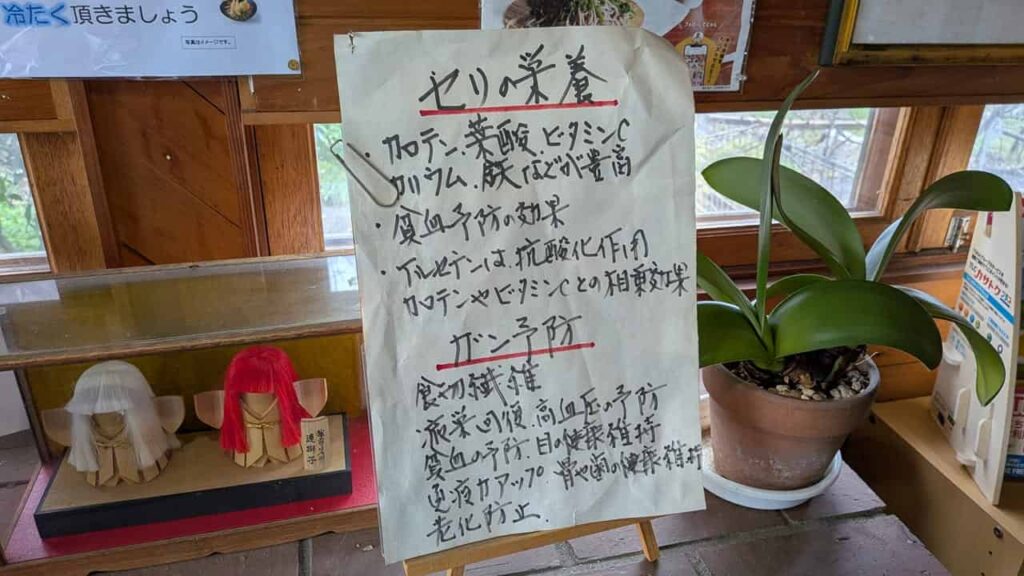 冷たく頂きましょう
写真はイメージです。
セリの栄養
・カロテン、葉酸、ビタミンC
カリウム、鉄などが豊富
・貧血予防の効果
・イルセテンは、抗酸化作用
カロテンやビタミンCとの相乗効果
ガン予防
食物繊維
疲労回復、高血圧の予防
貧血の予防、目の健康維持
免疫力アップ、骨や歯の健康維持
老化防止.
連獅子